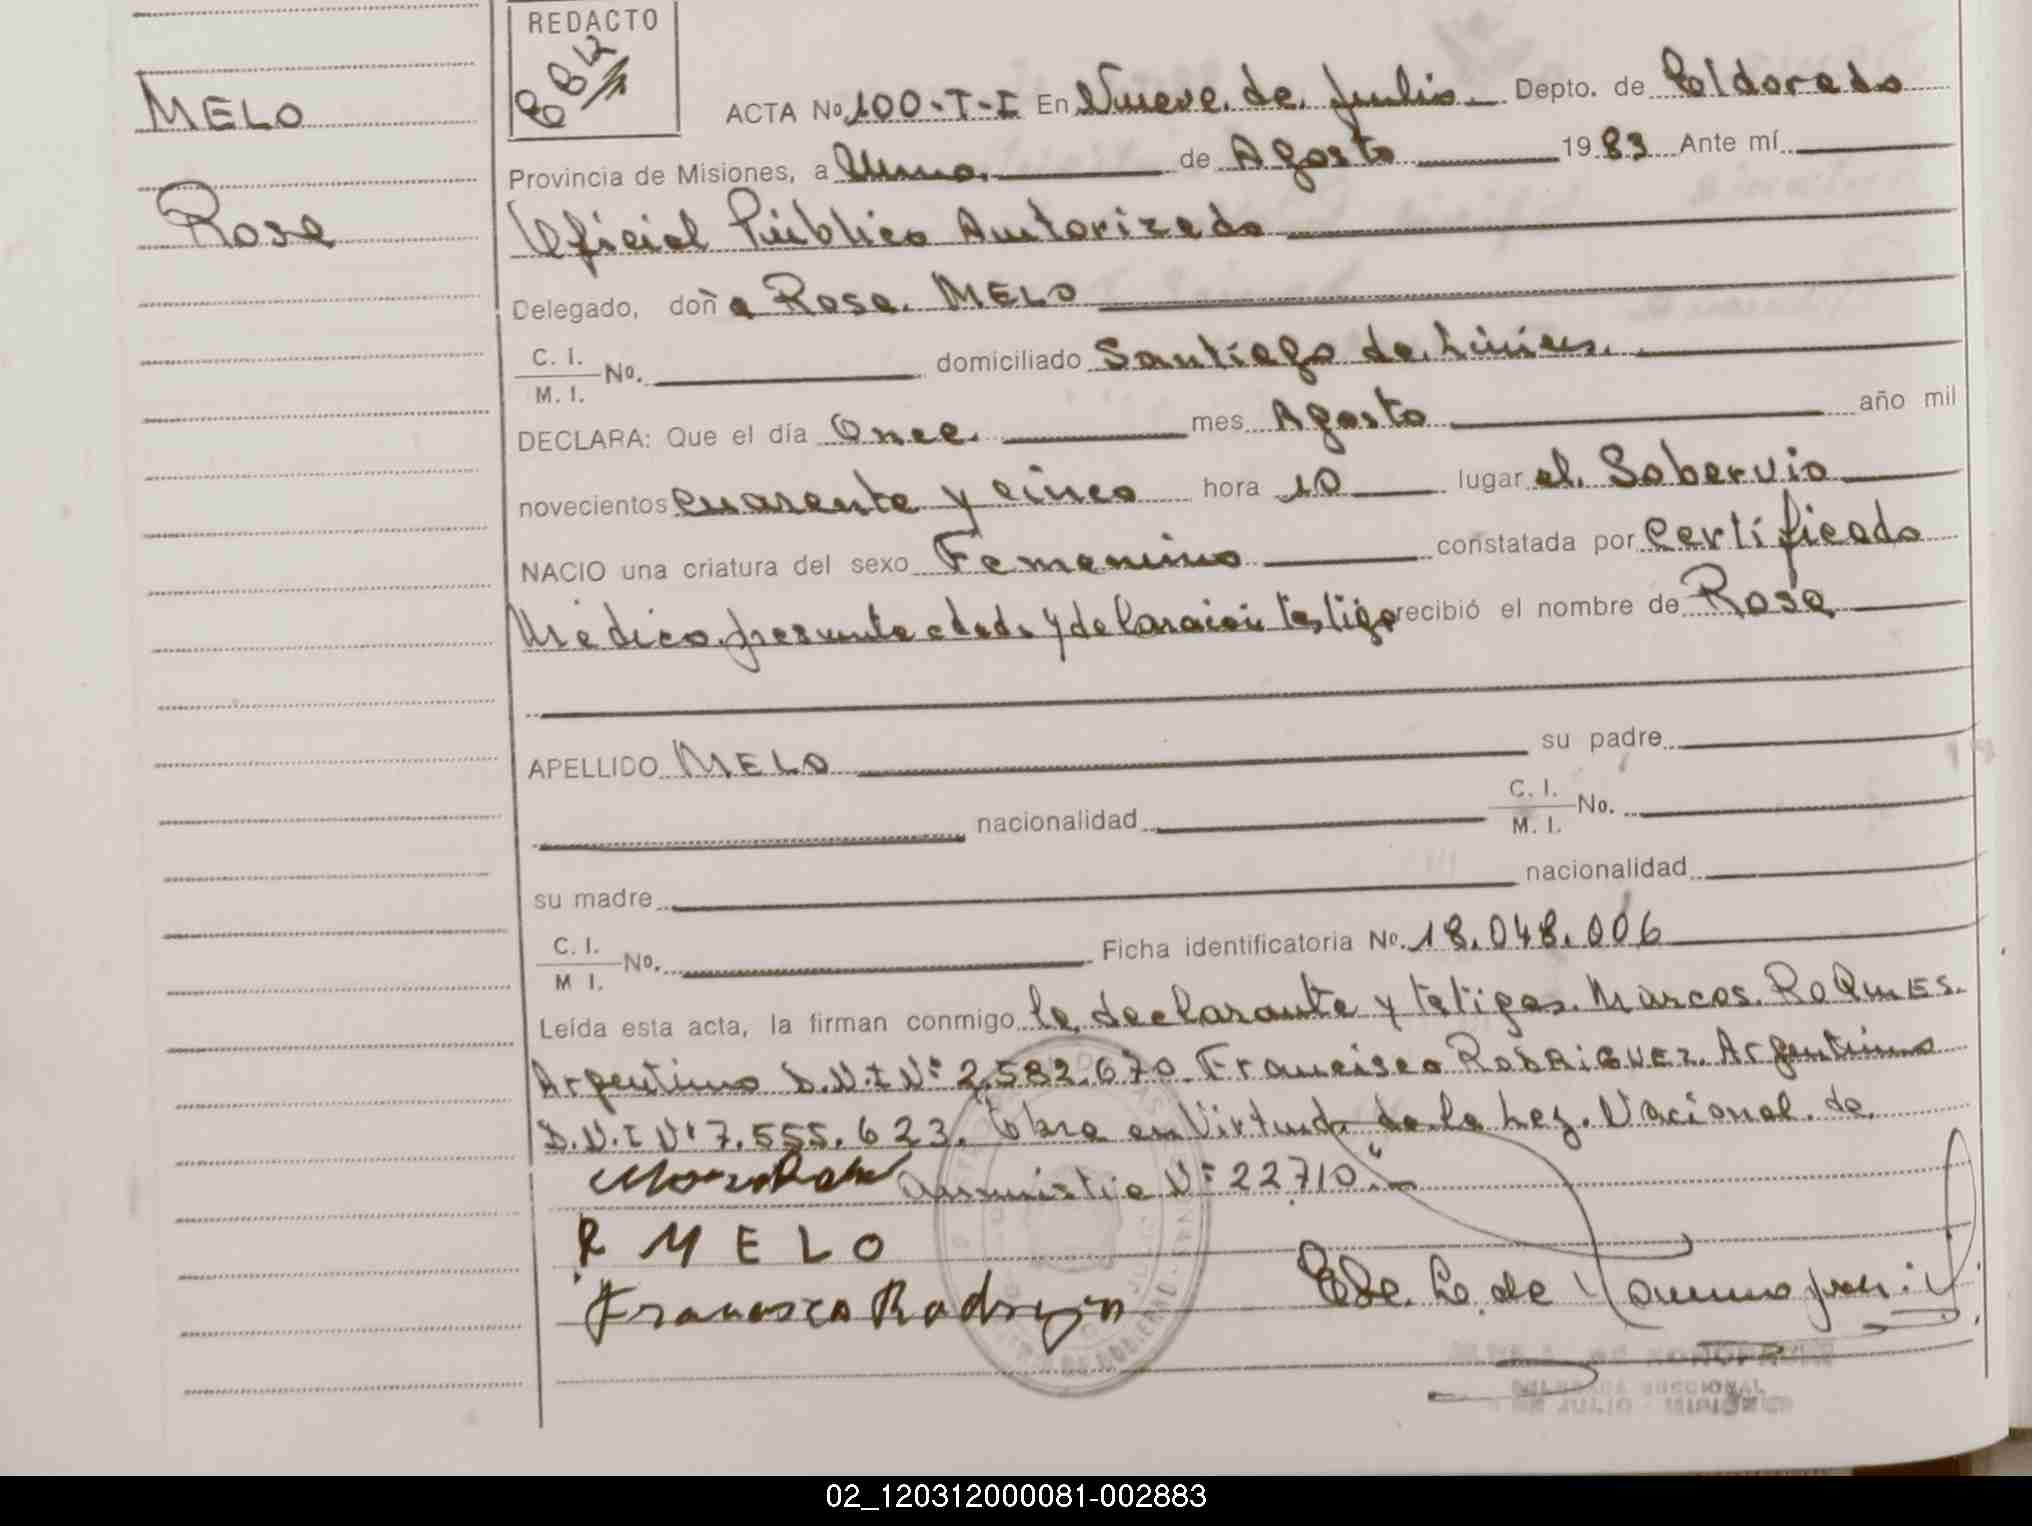 REDACTO
MELO
Rosa
ACTA No. 100-T-I En Nueve de Julio Depto. de Eldorado
Provincia de Misiones, a Uno de Agosto 1983 Ante mí
Oficial Público Autorizado
Delegado, doña Rosa MELO
C. I.
M. I. No. domiciliado Santiago de Liniers.
DECLARA: Que el día Once mes Agosto año mil
novecientos cuarenta y cinco hora 10 lugar el Sobervio
NACIO una criatura del sexo Femenino constatada por Certificado
Médico presunta edad y declaración testigo recibió el nombre de Rosa
APELLIDO MELO su padre
nacionalidad C. I.
M. I. No.
su madre nacionalidad
C. I.
M I. No. Ficha identificatoria No. 18.048.006
Leída esta acta, la firman conmigo la declarante y tetigos. Marcos RoQuES.
Argentino D.N.I Nº 2.582.670 Francisco RODRIGUEZ. Argentino
D.N.I Nº 7.555.623. Labra en Virtud de la Ley. Nacional de
amnistia Nº 22710"
R MELO
Francisco Rodrigez
DELEGADA SECCIONAL
02_120312000081-002883